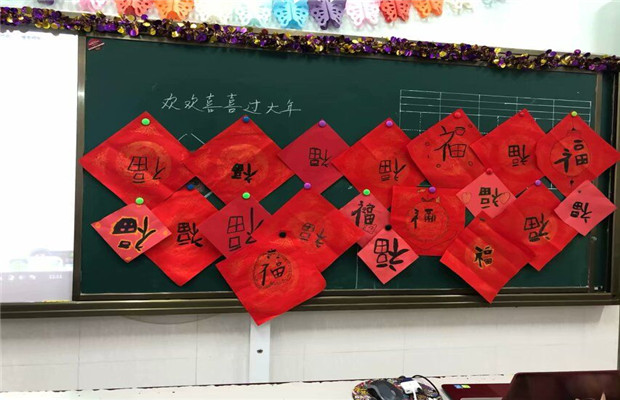 欢欢喜喜过大年
福 福 福 福 福 福 福
福 福 福 福 福 福 福 福 福
福 福 福